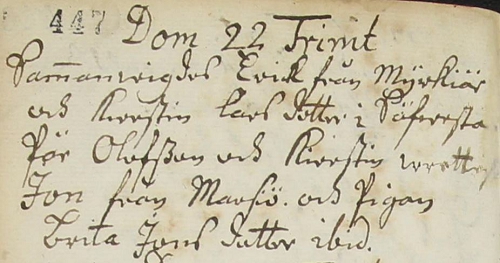 447
Dom 22 Trinit
Sammanvigdes Erick från Myrkiär
och Kierstin Lars dotter i Söfresta
Pär Olofsson och Kierstin
Jon från Marsiö. och Pigan
Brita Jons dotter ibid.